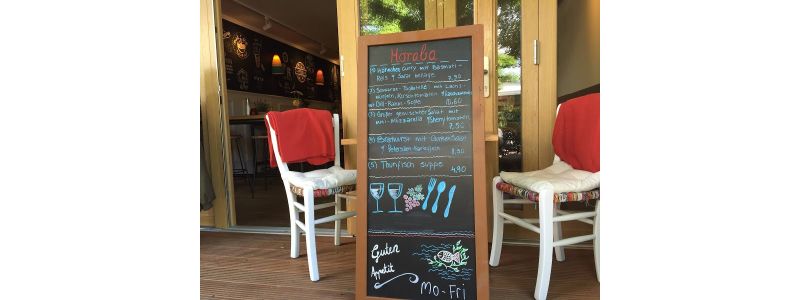 Moraba
(1) Hähnchen Curry mit Basmati-
Reis & Salat beilage 7,90
(2) Tagliatelle mit Lachs-
Dill-Rahm-Soße 10,60
(3) Großer gemischter Salat mit
Mini-Mozzarella & Cherrytomaten
7,50
(4) Bratwurst mit Gurkensalat
& Petersilien Kartoffeln
8,90
(5) Thunfisch suppe 4,90
Guten
Appetit
Mo-Fri